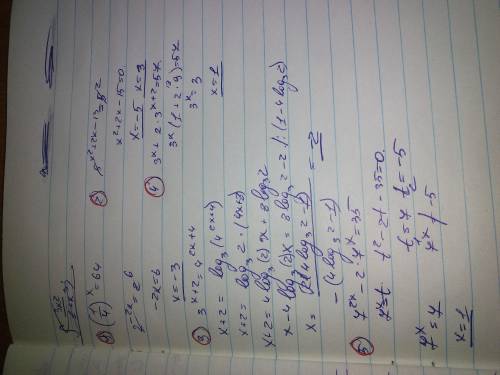 ① (1/4)^x = 64
2^-2x = 2^6
-2x = 6
x = -3
② 5^x²+2x-13 = 5^2
x²+2x-15=0
x=-5 x=3
③ 3^x+2 = 4^2x+4
x+2 = log₃(4^2x+4)
x+2 = log₃2·(4x+8)
x+2 = 4log₃(2)x + 8log₃2
x-4log₃(2)x = 8log₃2-2 |:(1-4log₃2)
x = 2(4log₃2-1)
-(4log₃2-1)
= -2
④ 3^x + 2·3^x+2 = 57
3^x(1+2·9)=57
3^x = 3
x=1
⑤ 7^2x - 2·7^x = 35
7^x=t t²-2t-35=0
t₁=7 t₂=-5
7^x ≠ -5
7^x = 7
x=1